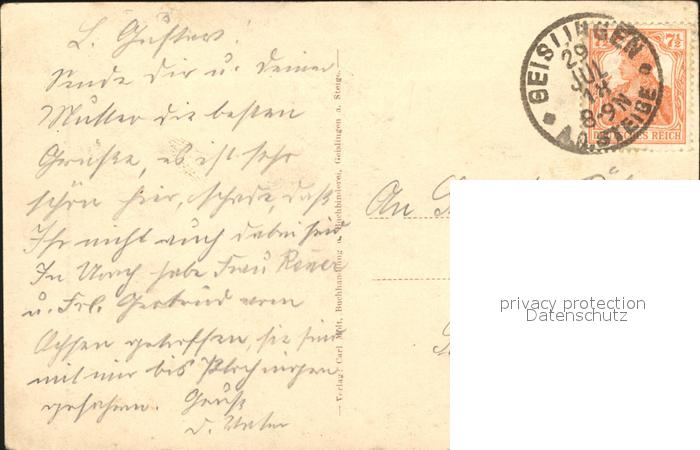 L. Gustav!
Sende Dir u. Deiner
Mutter die besten
Grüße, es ist sehr
schön hier, schade, daß
Ihr nicht auch dabei seid
In Urach habe Frau
u. Frl. Gertrud vom
getroffen, sie sind
mit mir bis Plochingen
gefahren. Gruß
d. Vater
Verlag: Carl Mott, Buchhandlung u. Buchbinderei, Geislingen a. Steige.
GEISLINGEN
29
JUL
8-9N
A.D. STEIGE
7½
REICH
An
privacy protection
Datenschutz